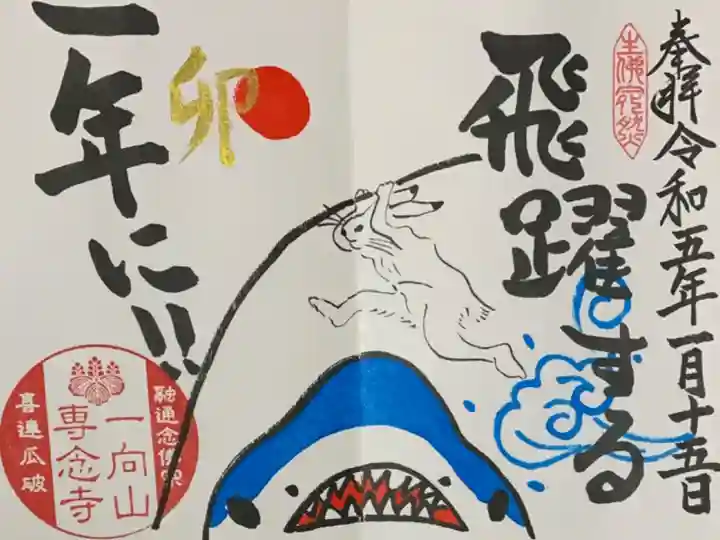 奉拝令和五年一月十五日
飛躍する
卯
一年に!!
融通念佛宗
一向山
専念寺
喜連瓜破